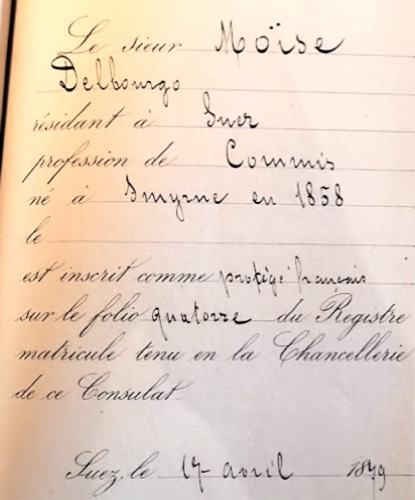 Le sieur Moïse
Delbourgo
résidant à Suez
profession de Commis
né à Smyrne en 1858
le
est inscrit comme protégé français
sur le folio quatorze du Registre
matricule tenu en la Chancellerie
de ce Consulat.
Suez, le 17 avril 1879